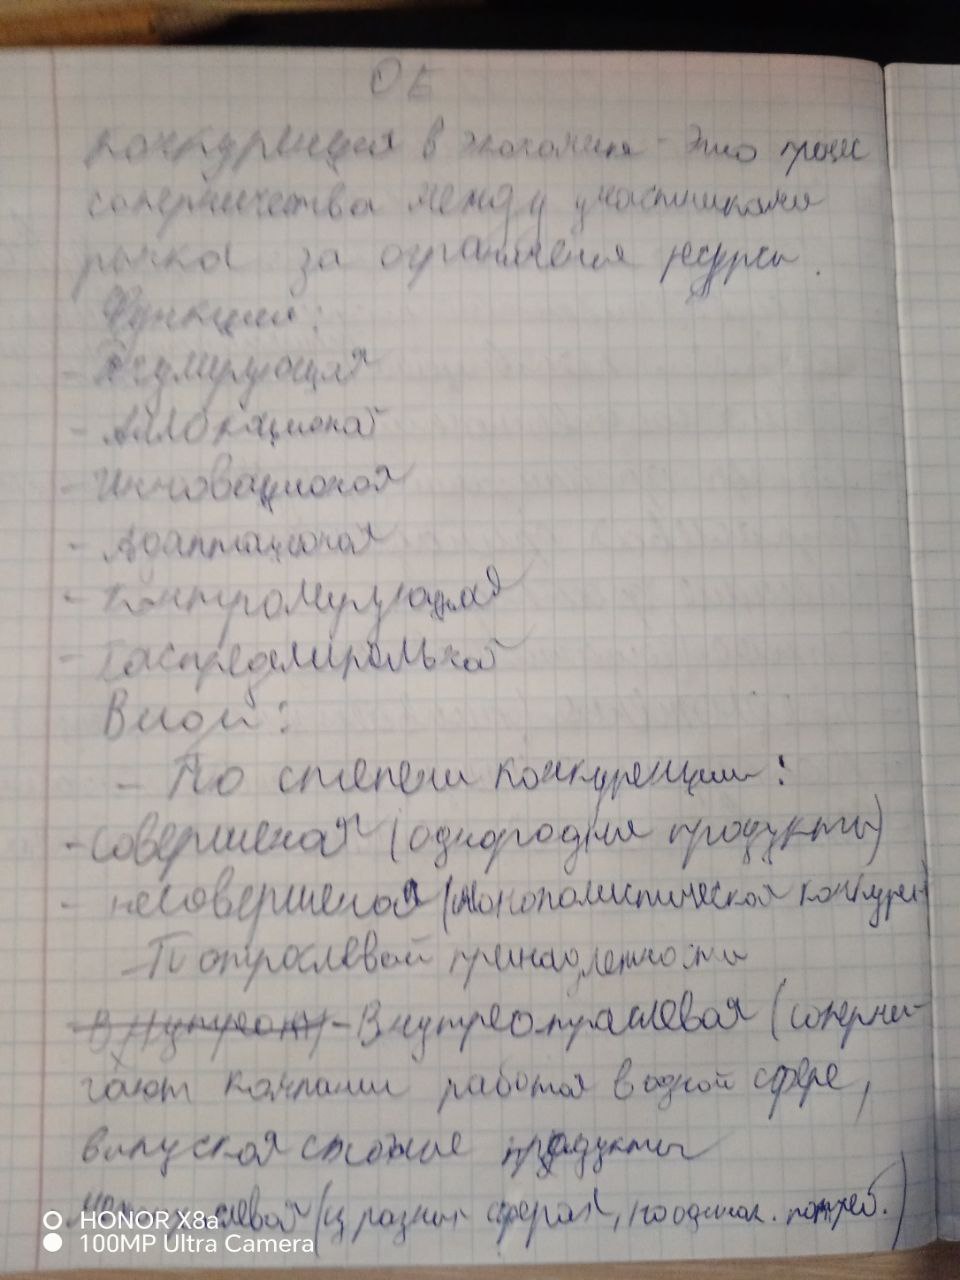 ОБ
Конкуренция в экономике - это процес
соперничества между участниками
рынка за ограничения ресурсы.
Функции:
- Регулирующая
- Аллокационой
- Инновационая
- Адаптационая
- Контролирующая
- Распределирельной
Виды:
- По степени конкуренции:
- совершеная (однородные продукты)
- несовершеная (монополистическая конкурен)
- По отраслевой принадлежности
- Внутреотраслевая (соперни-
чают компании работая в одной сфере,
выпуская схожие продукты
(из разных сферах, но одинак. потреб.)
HONOR X8a
100MP Ultra Camera